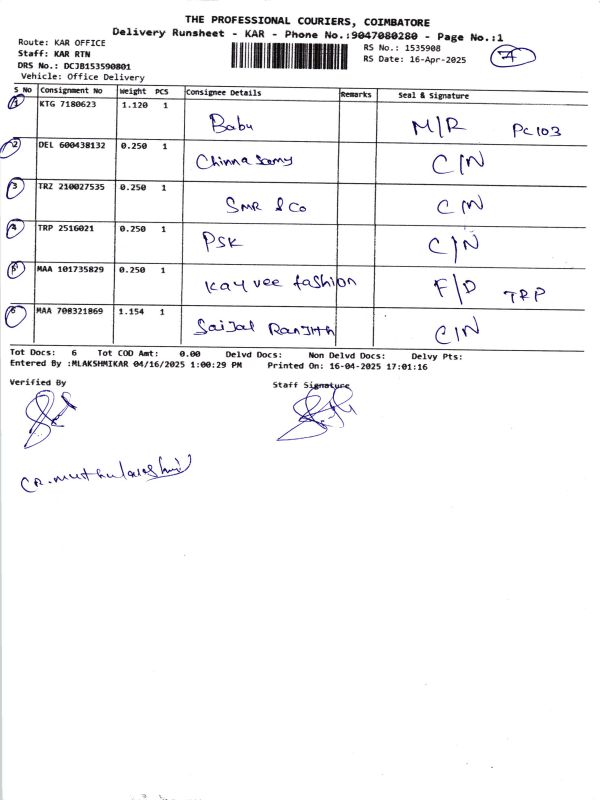 THE PROFESSIONAL COURIERS, COIMBATORE
Delivery Runsheet - KAR - Phone No.:9047080280 - Page No.:1
Route: KAR OFFICE
RS No.: 1535908
Staff: KAR RTN
RS Date: 16-Apr-2025
DRS No.: DCJB153590801
Vehicle: Office Delivery
S No Consignment No Weight PCS Consignee Details Remarks Seal & Signature
1 KTG 7180623 1.120 1 Babu M/R PC103
2 DEL 600438132 0.250 1 Chinna Samy C/N
3 TRZ 210027535 0.250 1 SMR & Co C/N
4 TRP 2516021 0.250 1 PSK C/N
5 MAA 101735829 0.250 1 Kay vee fashion F/D TRP
6 MAA 708321869 1.154 1 Ranjith C/N
Tot Docs: 6 Tot COD Amt: 0.00 Delvd Docs: Non Delvd Docs: Delvy Pts:
Entered By :MLAKSHMIKAR 04/16/2025 1:00:29 PM Printed On: 16-04-2025 17:01:16
Verified By Staff Signature